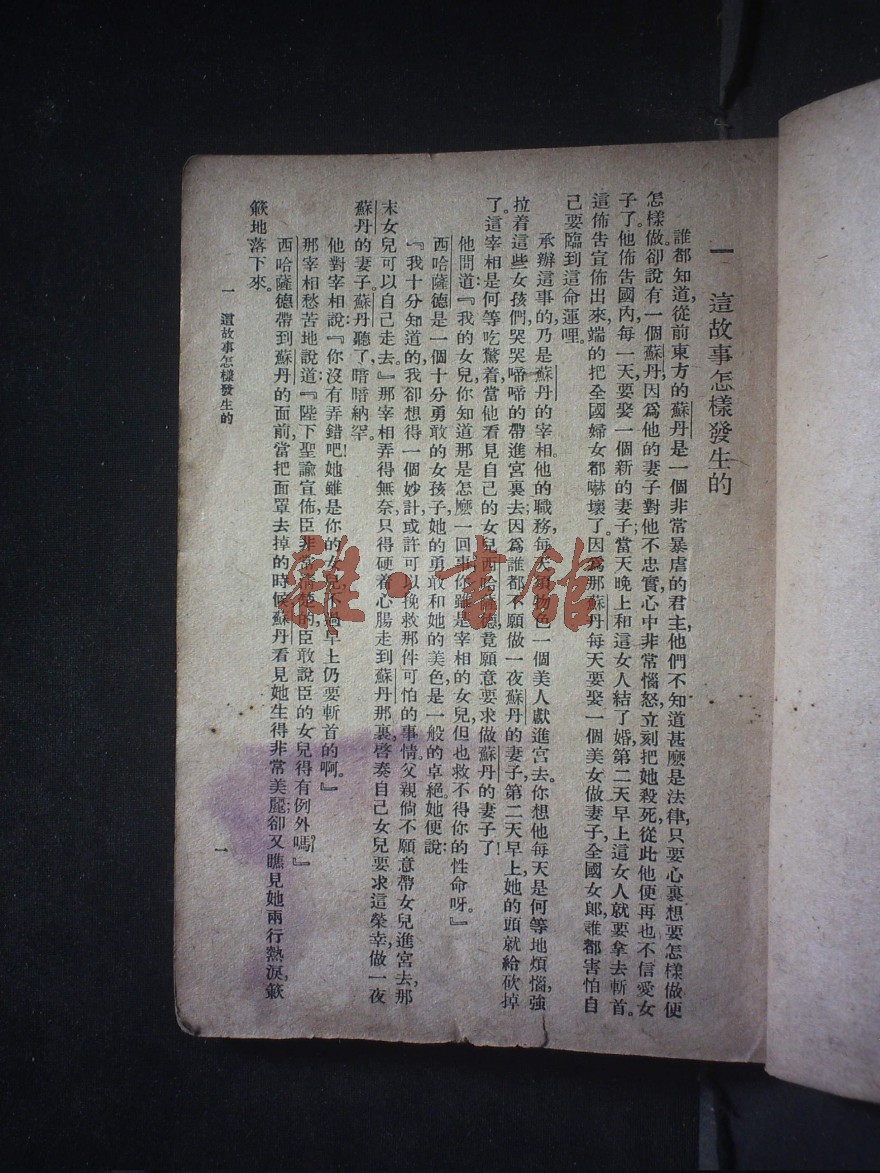 一 這故事怎樣發生的
誰都知道,從前東方的蘇丹是一個非常暴虐的君主,他們不知道甚麼是法律,只要心裏想要怎樣做便
怎樣做。卻說有一個蘇丹,因爲他的妻子對他不忠實,心中非常惱怒,立刻把她殺死,從此他便再也不信愛女
子了。他佈告國內,每一天要娶一個新的妻子;當天晚上和這女人結了婚,第二天早上這女人就要拿去斬首。
這佈告宣佈出來,端的把全國婦女都嚇壞了。因爲那蘇丹每天要娶一個美女做妻子,全國女郎,誰都害怕自
己要臨到這命運哩。
承辦這事的乃是蘇丹的宰相。他的職務,每天須物色一個美人獻進宮去。你想他每天是何等地煩惱,強
拉着這些女孩們,哭哭啼啼的帶進宮裏去;因爲誰都不願做一夜蘇丹的妻子,第二天早上,她的頭就給砍掉
了。這宰相是何等吃驚着,當他看見自己的女兒西哈薩德,竟願意要求做蘇丹的妻子了!
他問道:『我的女兒,你知道那是怎麼一回事?你雖是宰相的女兒,但也救不得你的性命呀。』
西哈薩德是一個十分勇敢的女孩子,她的勇敢和她的美色是一般的卓絕。她便說:
『我十分知道的,我卻想得一個妙計,或許可以挽救那件可怕的事情。父親倘不願意帶女兒進宮去,那
末女兒可以自己走去。』那宰相弄得無奈,只得硬着心腸走到蘇丹那裏,啓奏自己女兒要求這榮幸,做一夜
蘇丹的妻子。蘇丹聽了,暗暗納罕。
他對宰相說:『你沒有弄錯吧!她雖是你的女兒,不過早上仍要斬首的啊。』
那宰相愁苦地說道:『陛下聖諭宣佈,臣非常清楚的,臣敢說臣的女兒得有例外嗎?』
西哈薩德帶到蘇丹的面前,當把面罩去掉的時候,蘇丹看見她生得非常美麗;卻又瞧見她兩行熱淚,簌
簌地落下來。
一 這故事怎樣發生的
一
雜·書館